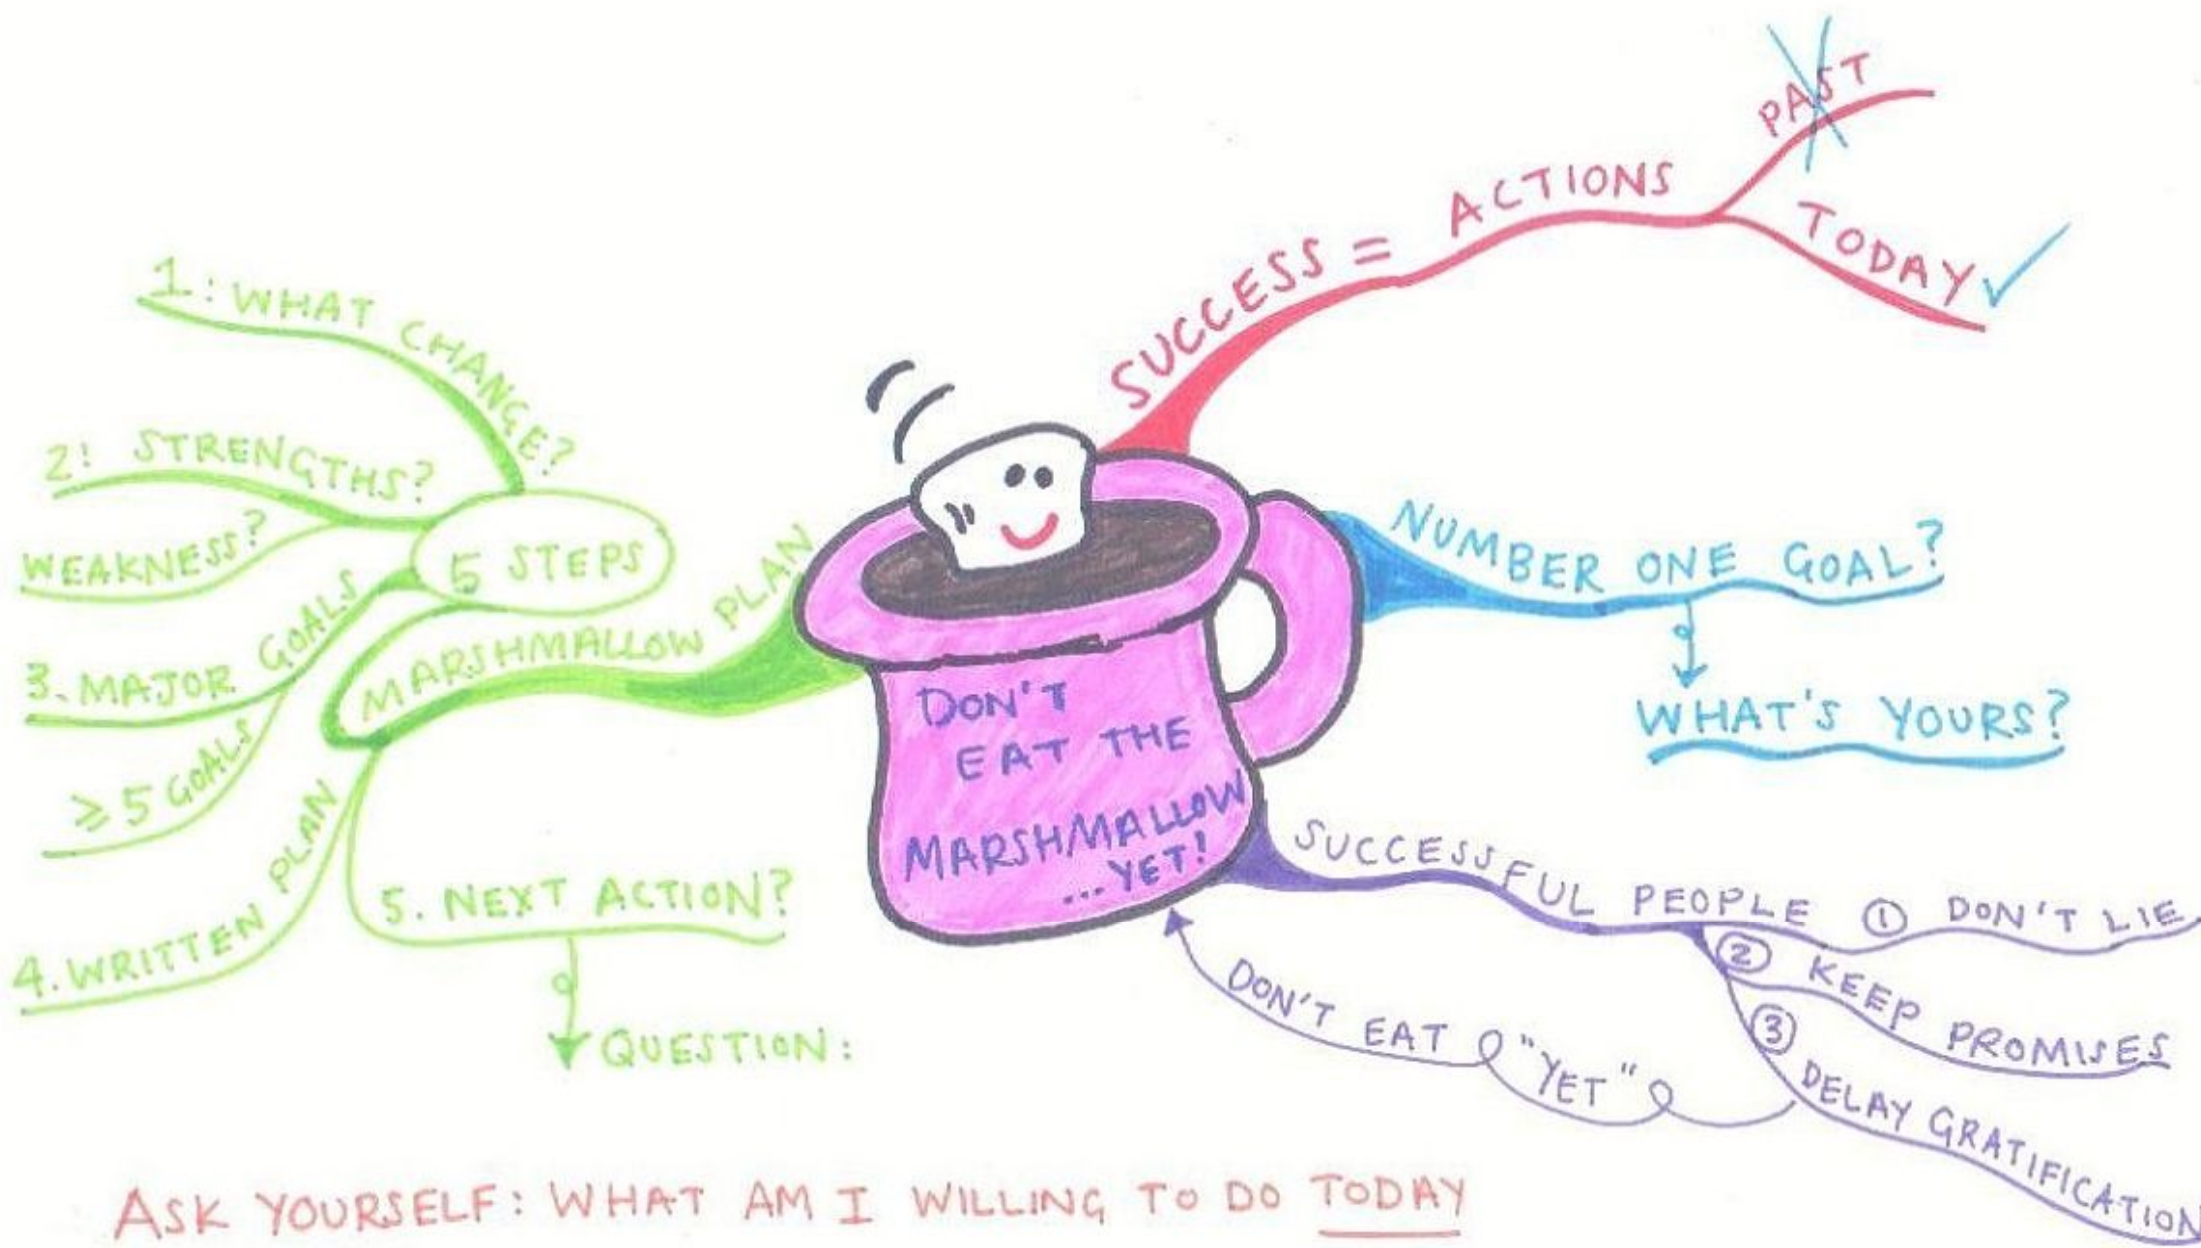 DON'T
EAT THE
MARSHMALLOW
...YET!
SUCCESS = ACTIONS
PAST
TODAY
NUMBER ONE GOAL?
WHAT'S YOURS?
SUCCESSFUL PEOPLE
① DON'T LIE
② KEEP PROMISES
③ DELAY GRATIFICATION
DON'T EAT "YET"
MARSHMALLOW PLAN
5 STEPS
1: WHAT CHANGE?
2: STRENGTHS?
WEAKNESS?
3. MAJOR GOALS
≥ 5 GOALS
4. WRITTEN PLAN
5. NEXT ACTION?
QUESTION:
ASK YOURSELF: WHAT AM I WILLING TO DO TODAY